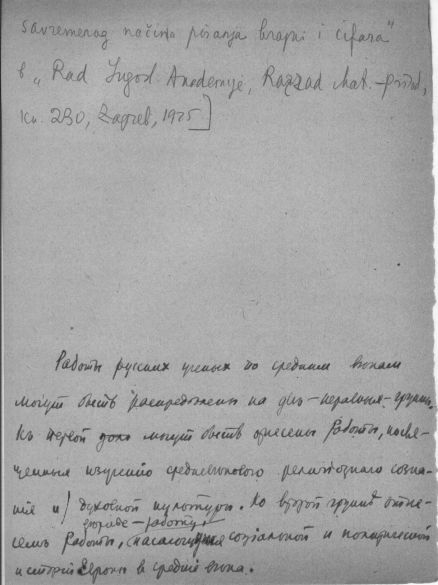 savremenog načina pisanja brojni i cifara"
в „Rad Jugosl. Akademije, Razzad Mat.-prirod,
Кн. 230, Zagreb, 1925]
Работы русских ученых по средним векам
могут быть распределены на двѣ - неравныя - группы.
Къ первой должны могут быть отнесены работы, посвя-
щенные изучению средневѣкового религиозного созна-
ния и духовной культуры. Ко второй группѣ отне-
семъ работы, касающiяся социальной и политической
истории Европы в средние вѣка.